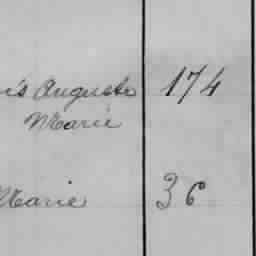 is Auguste 174
Marie
Marie 36